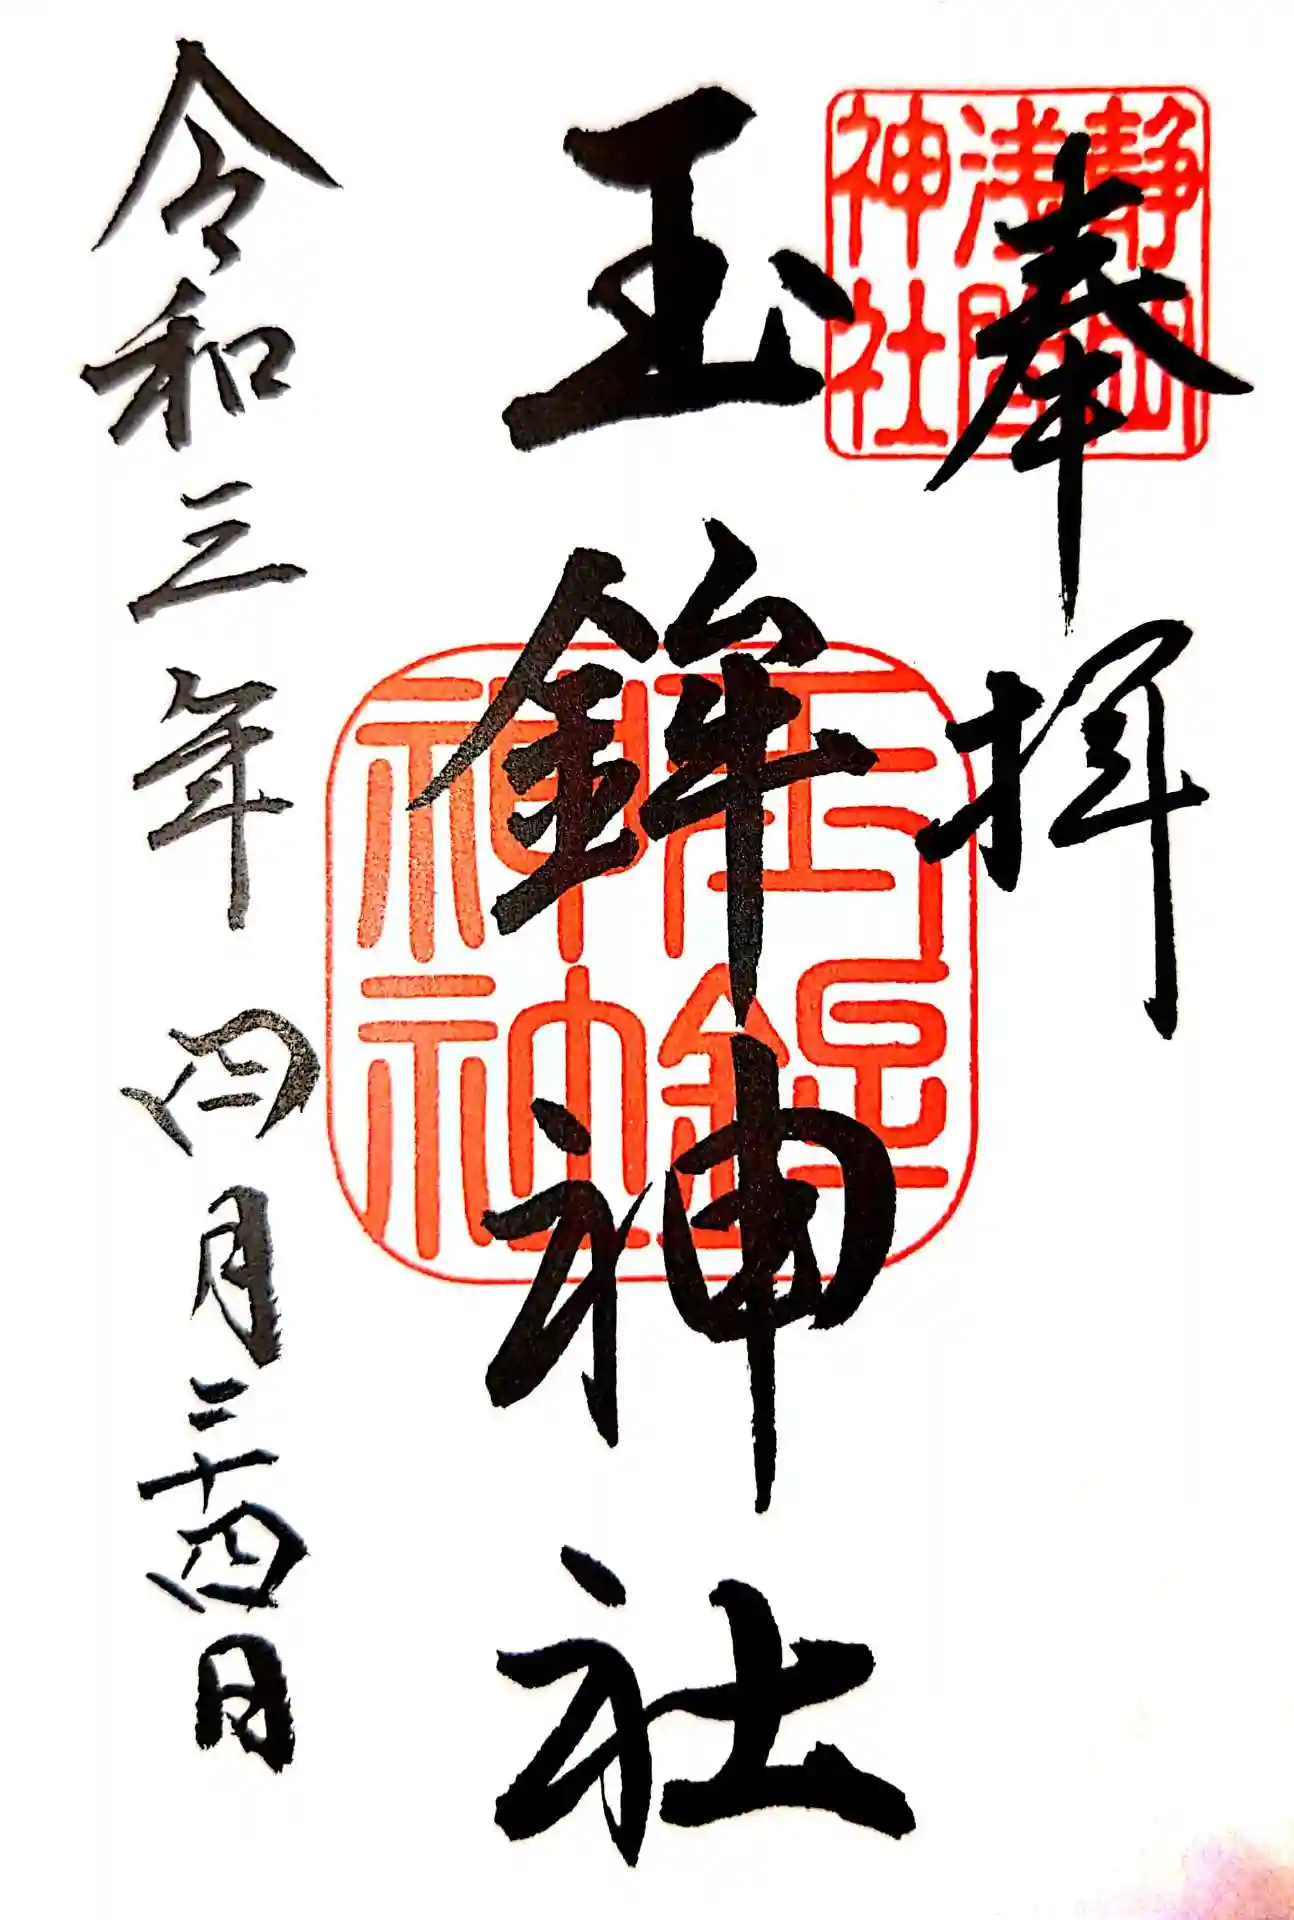 奉拝
静岡
浅間
神社
玉鉾神社
令和三年四月二十四日